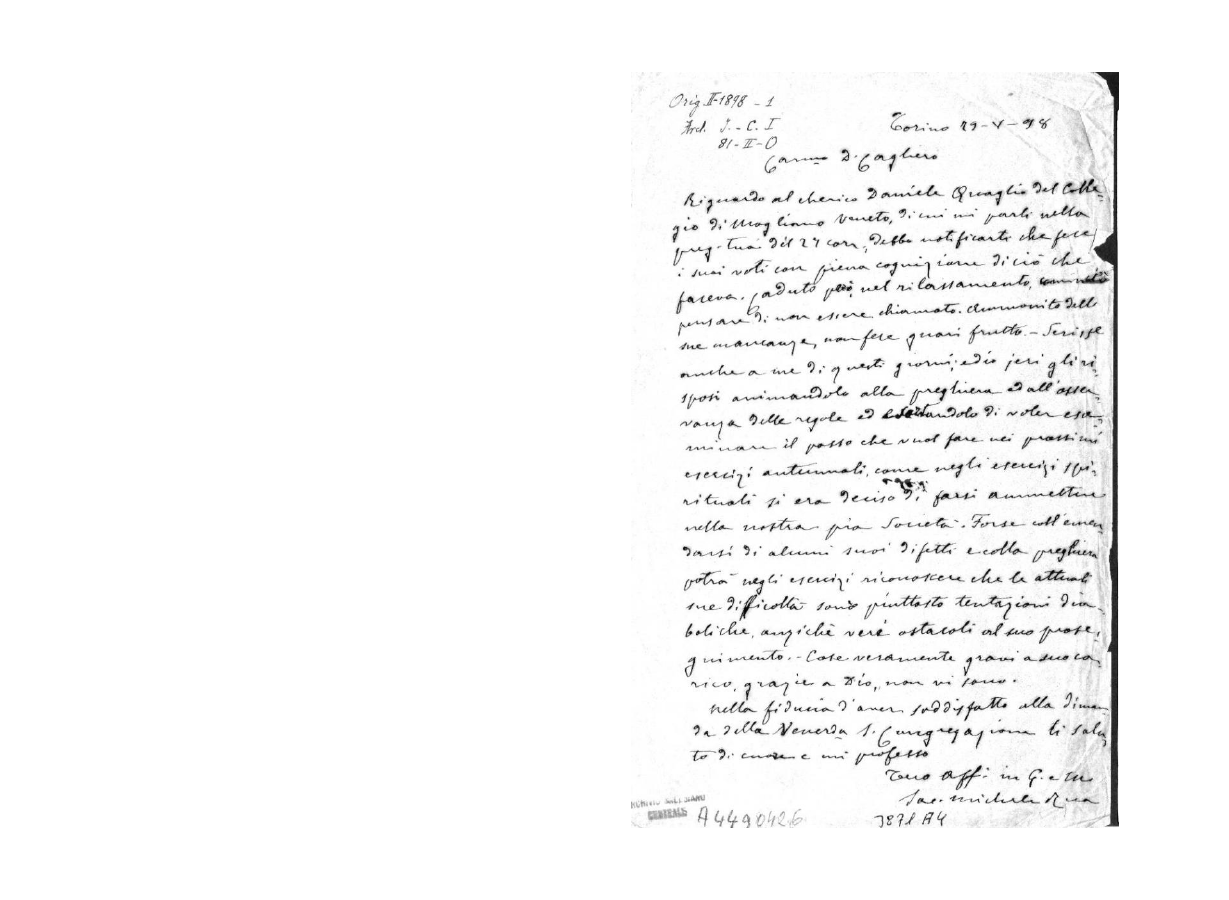 Orig. II-1898 - 1
Arch. S. - C. I
81-II-O
Torino 29-V-98
Carmo D. Cagliero
Riguardo al cherico Daniele Quaglio del Colle-
gio di Mogliano Veneto, di cui mi parli nella
preg. tua del 27 corr, debbo notificarti che fece
i suoi voti con piena cognizione di ciò che
faceva. Caduto però nel rilassamento,
pensare di non essere chiamato. Ammonito delle
sue mancanze, non fece guari frutto. - Scrisse
anche a me di questi giorni; ed io jeri gli ri-
sposi animandolo alla preghiera ed all'osser-
vanza delle regole ed esortandolo di voler esa-
minare il passo che vuol fare nei prossimi
esercizi autunnali, come negli esercizi spi-
rituali si era deciso di farsi ammettere
nella nostra pia Società. Forse coll'emen-
darsi di alcuni suoi difetti e colla preghiera
potrà negli esercizi riconoscere che le attuali
sue difficoltà sono piuttosto tentazioni dia-
boliche, anzichè veri ostacoli al suo prose-
guimento. - Cose veramente gravi a suo ca-
rico, grazie a Dio, non vi sono.
Nella fiducia d'aver soddisfatto alla diman-
da della Venerda S. Congregazione ti salu-
to di cuore e mi professo
Tuo aff. in G. e M.
Sac. Michele Rua
CENTRALE
A4490426
3871 A4